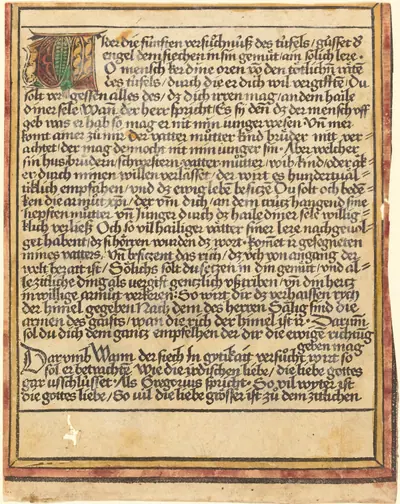 Wider die fünften versuͦchnuß des tüfels / güsset d
engel dem siechen in sin gemüt ain soͤlich lere ·
O mensch ker dine oren von den toͤtlichen raͤte
des tüfels / durch die er dich wil vergifften / Du
solt vergessen alles des / dz dich irren mag / an dem haile
diner sele · Wan der herr spricht Es sy den dz der mensch vff
geb was er hab so mag er nit min iunger wesen · Vn mer
komt ainer zu mir der vatter muͦtter kind bruͤder nitt ver
achtet / der mag dennocht nit min iunger sin · Aber welcher
sin hus / bruͤdern / schwestern / vatter / muͦtter / wib / kind / oder aͤk
er durch minen willen verlasset / der wirt es hundertual
tiklich empfahen / vnd dz ewig leben besicze Du solt och bede
ken die armuͦt xpi / der vm dich / an dem crucz hangend sine
liepsten muͦtter vn Junger durch dz haile diner sele willig
klich verließ Och so vil hailiger vaͤtter siner lere nachgeuol
get habent / dz si hoͤrren wurden dz wort · komet ir gesegneten
mines vatters · Vn besiczent das rich / dz vch von angang der
welt berait ist / Soͤlichs solt du seczen in din gemuͤt / vnd al
le zitliche ding als vergift genczlich vßtriben / vn din hercz
in willige armuͦt verkeren · So wirt dir dz verhaissen rych
der himel gegeben / Nach dem des herren Saͤlig sind die
armen des gaists / wan die rich der himel ist ir · Darum
solt du dich dem gantz empfelhen der dir die ewige richtung
geben mag
Darvm / Wann der siech In gytikait versuͦcht wirt so
sol er betrachten Wie die irdischen liebe / die liebe gottes
gar vsschlüsset · Als Gregorius spricht · So vil wyter ist
die gottes liebe / So vil die liebe groͤsser ist zu dem zitlichen